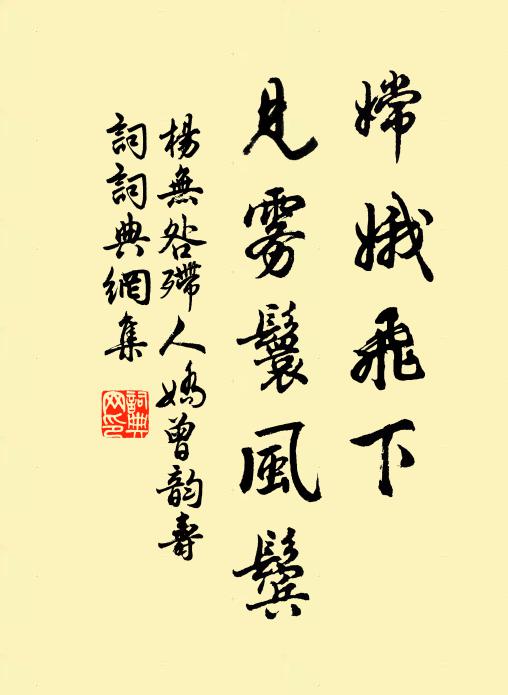 嫦娥飛下
見雾鬟風鬓
楊無咎殢人嬌曾韵壽
詞詞典網集
詞典网印